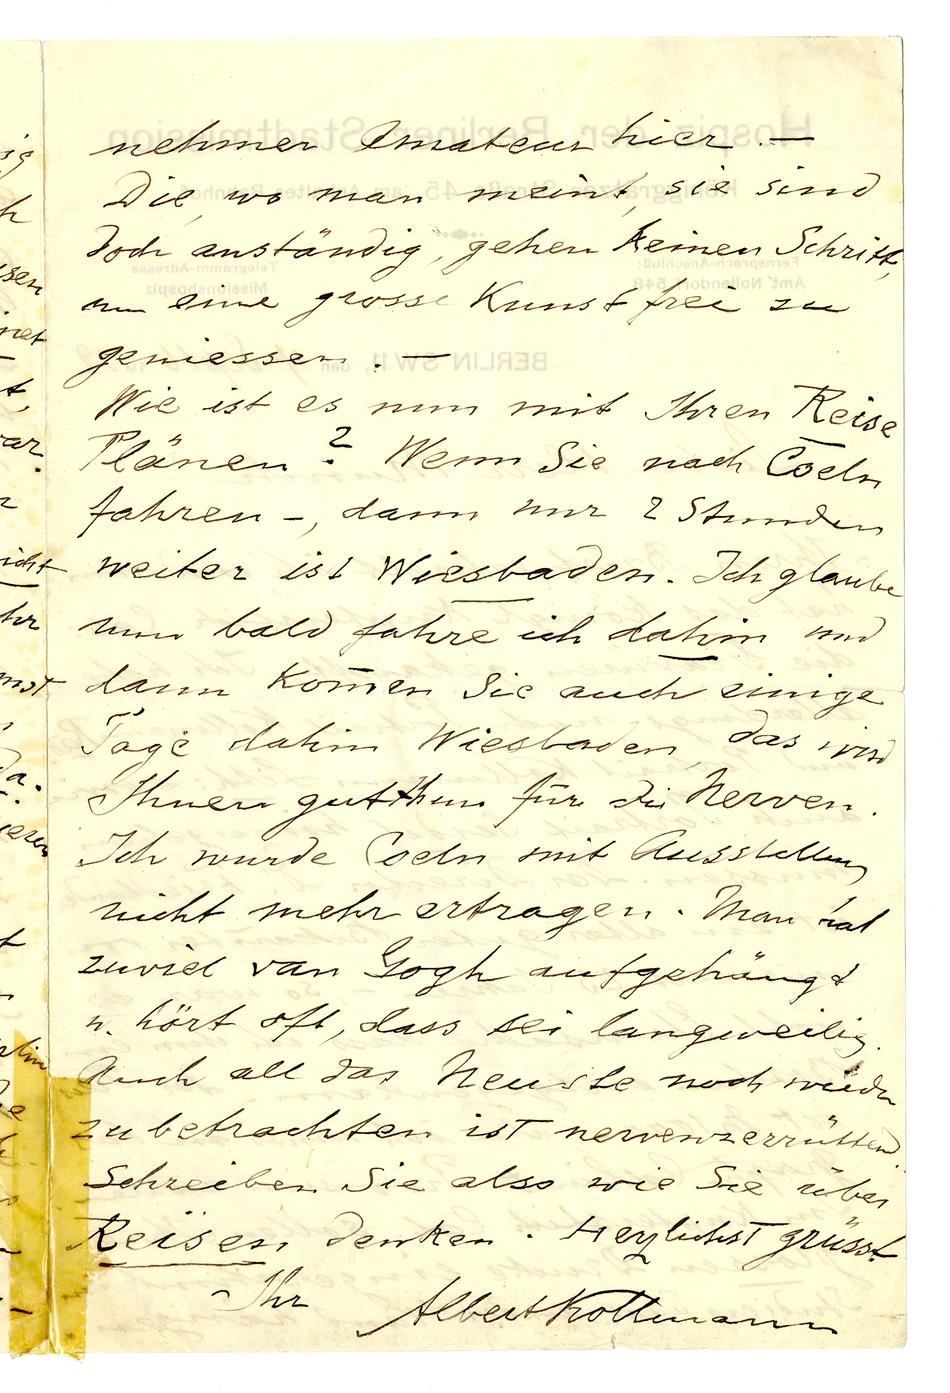 nehmer Amateur hier. —
Die, wo man meint, sie sind
doch anständig, gehen keinen Schritt,
um eine grosse Kunst frei zu
geniessen. —
Wie ist es nun mit Ihren Reise
Plänen? Wenn Sie nach Coeln
fahren –, dann nur 2 Stunden
weiter ist Wiesbaden. Ich glaube
nun bald fahre ich dahin und
dann kom̄en Sie auch einige
Tage dahin Wiesbaden, das wird
Ihnen gut thun für die Nerven.
Ich wurde Coeln mit Ausstellung
nicht mehr ertragen. Man hat
zuviel van Gogh aufgehängt
u. hört oft, dass sei langweilig.
Auch all das Neuste noch wieder
zu betrachten ist nervenzerrüttend.
Schreiben Sie also wie Sie über
Reisen denken. Herzlichst grüsst
Ihr Albert Kollmann